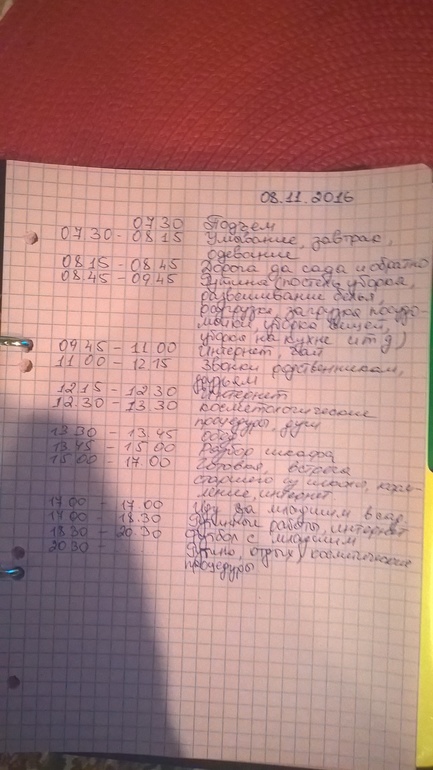 08.11.2016
07 30 Подъем
07 30 - 08 15 Умывание, завтрак,
одевание
08.15 - 08 45 Дорога до сада и обратно
08.45 - 09 45 Рутина (постель, уборка,
развешивание белья,
разгрузка, загрузка посудо-
мойки, уборка вещей,
уборка на кухне и т д)
09 45 - 11 00 Интернет,
11 00 - 12 15 Звонки родственникам,
друзьям
12.15 - 12 30 Интернет
12.30 - 13 30 Косметологические
процедуры, душ
13 30 - 13.45 Обед
13 45 - 15 00 Разбор шкафа
15 00 - 17.00 Готовка, встреча
старшего из школы,
интернет
17 00 - 17.00 Иду за младшим в сад
17 00 - 18.30 Рутинные работы, интернет
18.30 - 20 30 Футбол с младшим
20 30 - отдых, косметические
процедуры